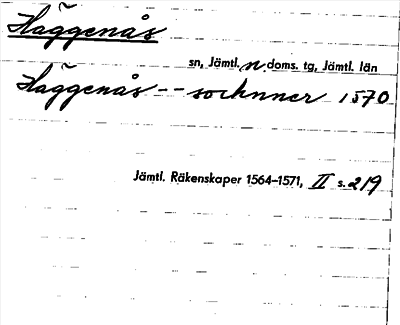 Häggenås
sn, Jämtl. n. doms. tg, Jämtl. län
Häggenås -- sochnner 1570
Jämtl. Räkenskaper 1564–1571, II s. 219